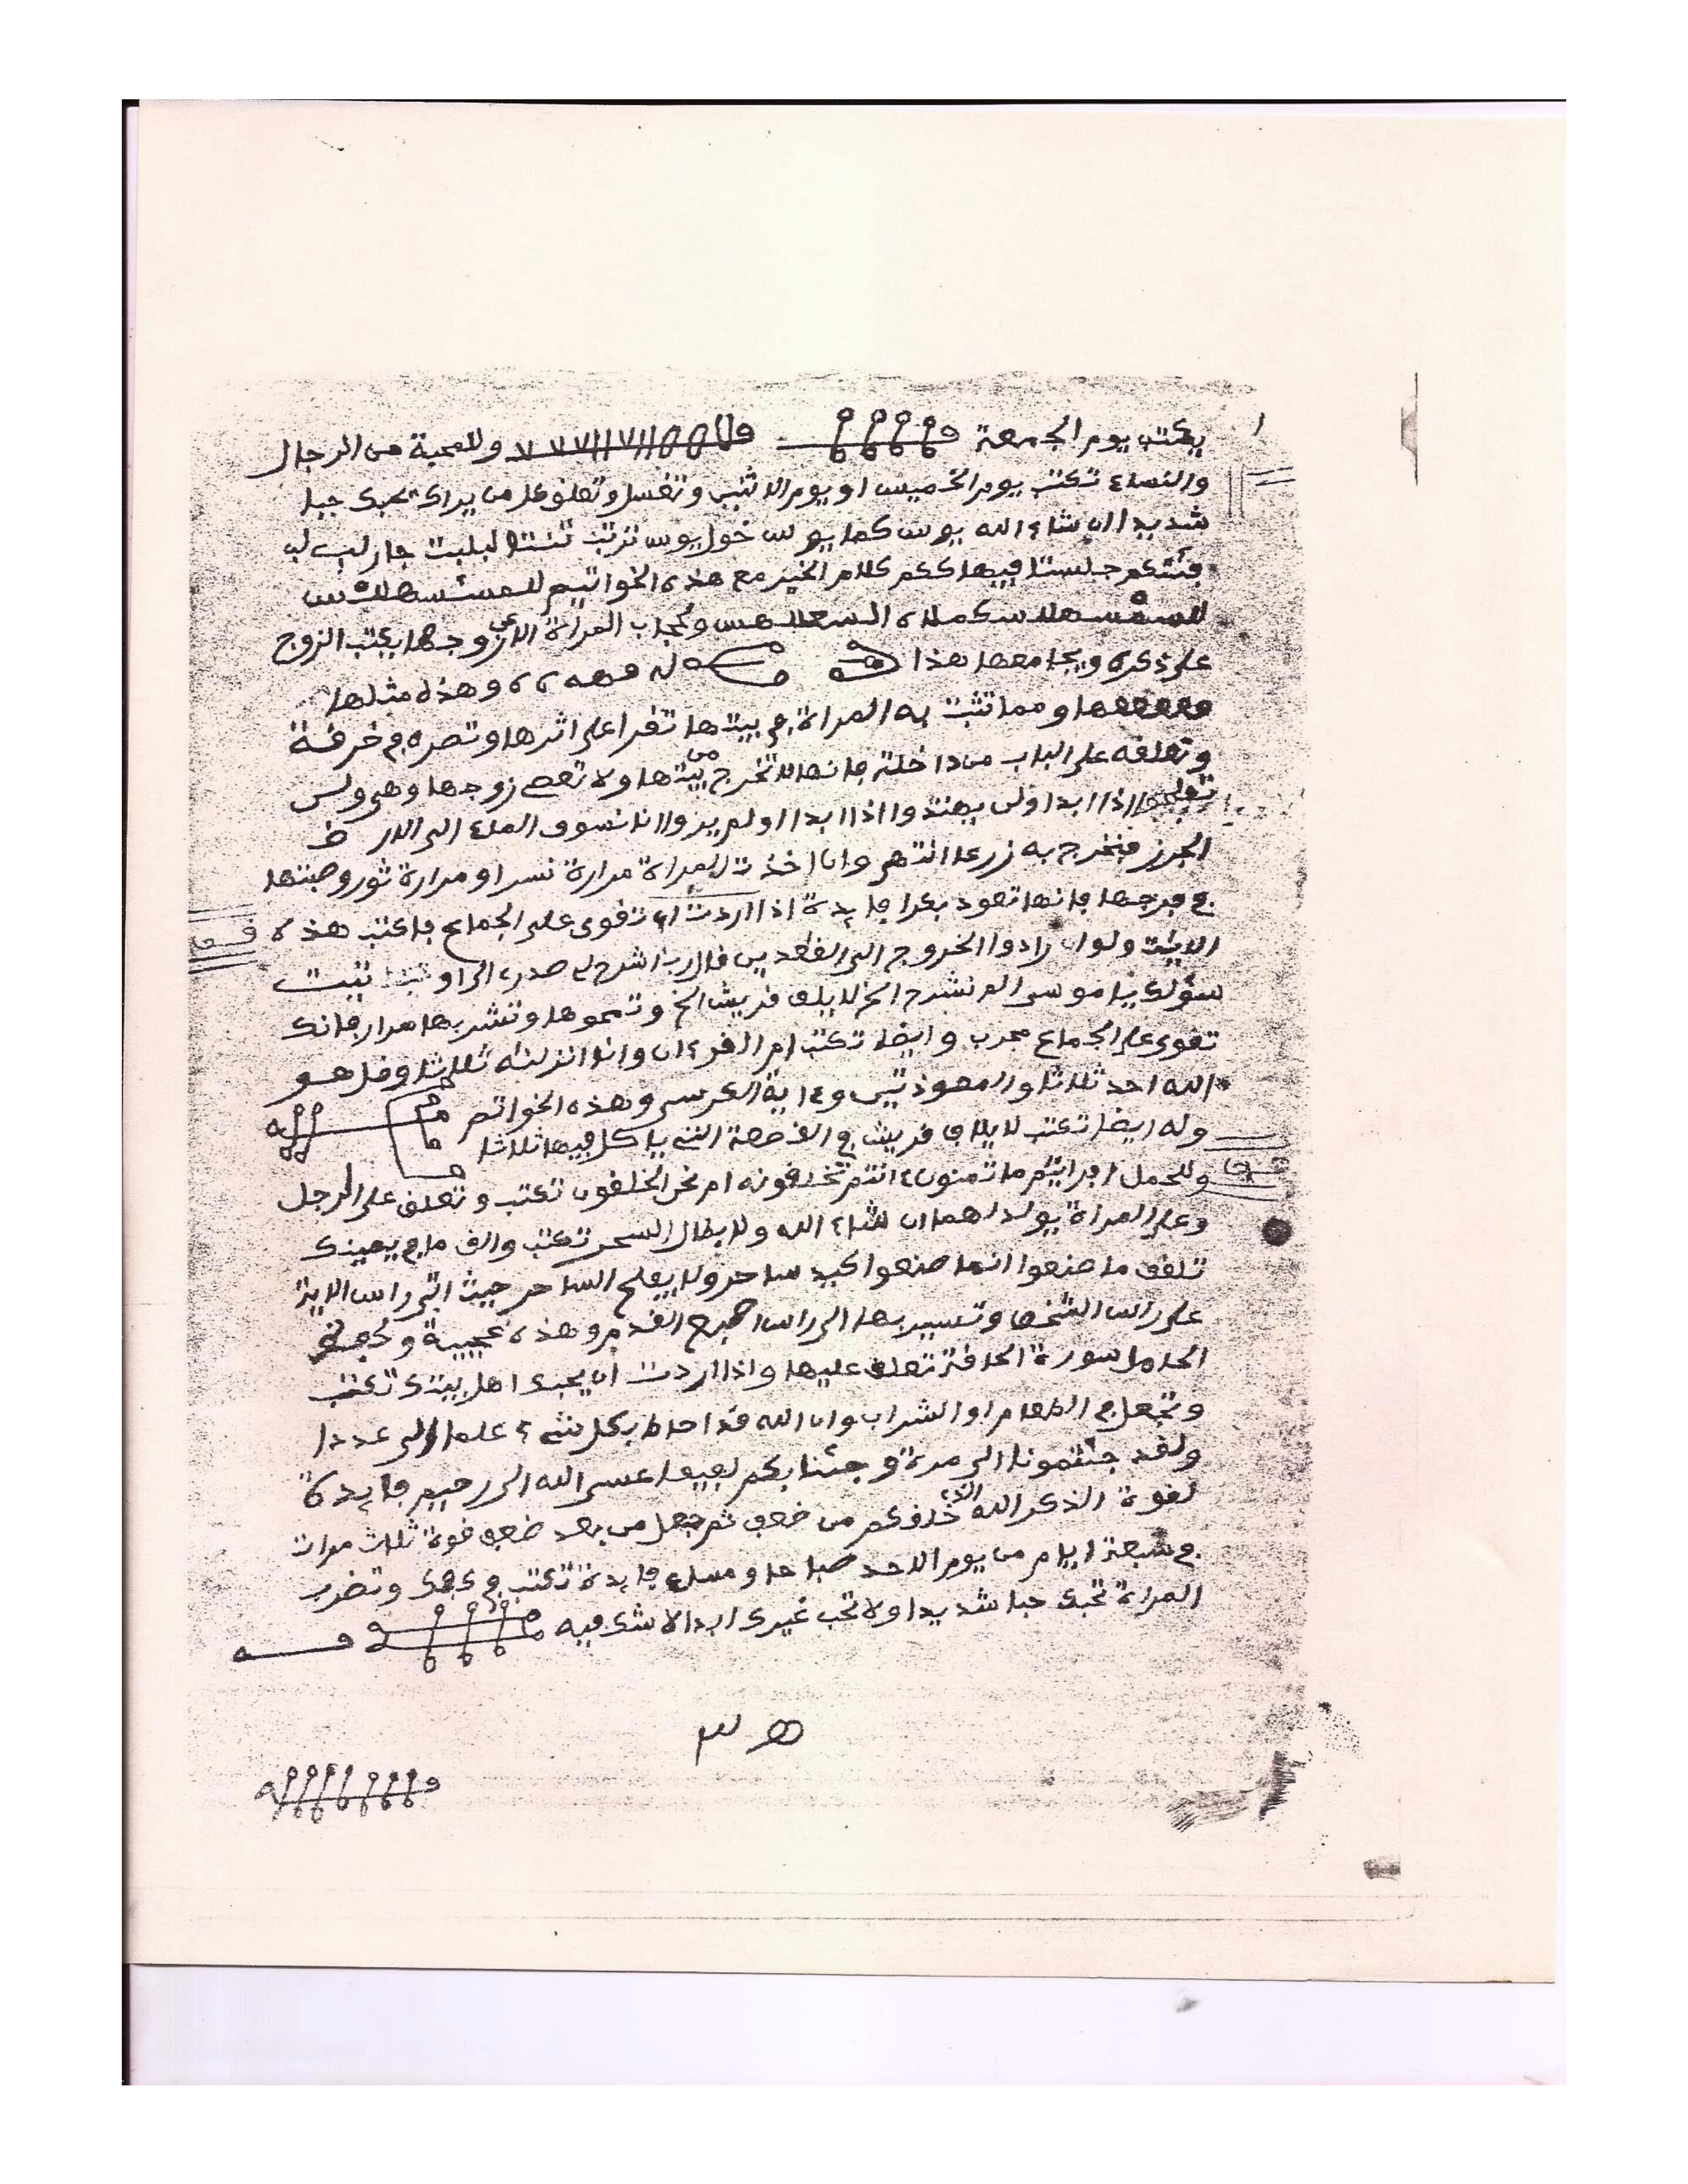 يكتب يوم الجمعة وللمحبة من الرجال
والنساء تكتب يوم الخميس او يوم الاثنين وتغسل وتعلق كل من يراك يحبك حبا
شديدا ان شاء الله يوس كما يوس
جلستا فيها ككم كلام الخير مع هذه الخواتيم
المراة زوجها يكتب الزوج
على ذكره ويجامعها هذا وهذه مثلها
ومما تثبت به المراة في بيتها تقرا على اثرها وتصره في خرقة
وتعلقه على الباب من داخله فانها لا تخرج من بيتها ولا تعصي زوجها وهي ولن
اذا ابدا ولن يهتدوا اذا ابدا اولم يروا انا نسوق الماء الى الارض
الجرز فنخرج به زرعا انتهى وان اخذت المراة مرارة نسر او مرارة ثور وصبتها
في فرجها فانها تعود بكرا فايدة اذا اردت ان تقوى على الجماع فاكتب هذه
ولو ارادوا الخروج الى القعدين قال رب اشرح لي صدري الى اوتيت
سؤلك يا موسى الم نشرح الخ لايلف قريش الخ وتمحوها وتشربها مرار فانك
تقوى على الجماع مجرب وايضا تكتب ام القرءان وانا انزلنه ثلاثا وقل هو
الله احد ثلاثا والمعوذتين وءاية الكرسي وهذه الخواتم
وله ايضا تكتب لايلاف قريش في القصعة التي ياكل فيها ثلاثا
وللحمل افرايتم ما تمنون ءانتم تخلقونه ام نحن الخلقون تكتب وتعلق على الرجل
وعلى المراة يولد لهما ان شاء الله ولابطال السحر تكتب والق ما في يمينك
تلقف ما صنعوا انما صنعوا كيد ساحر ولا يفلح الساحر حيث اتى راس الاية
على راس الشخص وتسير بها الى راس اصبع القدم وهذه عجيبة
الحامل سورة الحاقة تعلق عليها واذا اردت ان يحبك اهل بيتك تكتب
وتجعل في الطعام او الشراب وان الله قد احاط بكل شيء علما الى عددا
ولقد جئتمونا الى مرة وجئنا بكم لفيفا عسى الله الى رحيم فايدة
لقوة الذكر الله الذي خلقكم من ضعف ثم جعل من بعد ضعف قوة ثلاث مرات
في سبعة ايام من يوم الاحد صباحا ومساء فايدة تكتب في كفك وتضرب
المراة تحبك حبا شديدا ولا تحب غيرك ابدا لا شك فيه